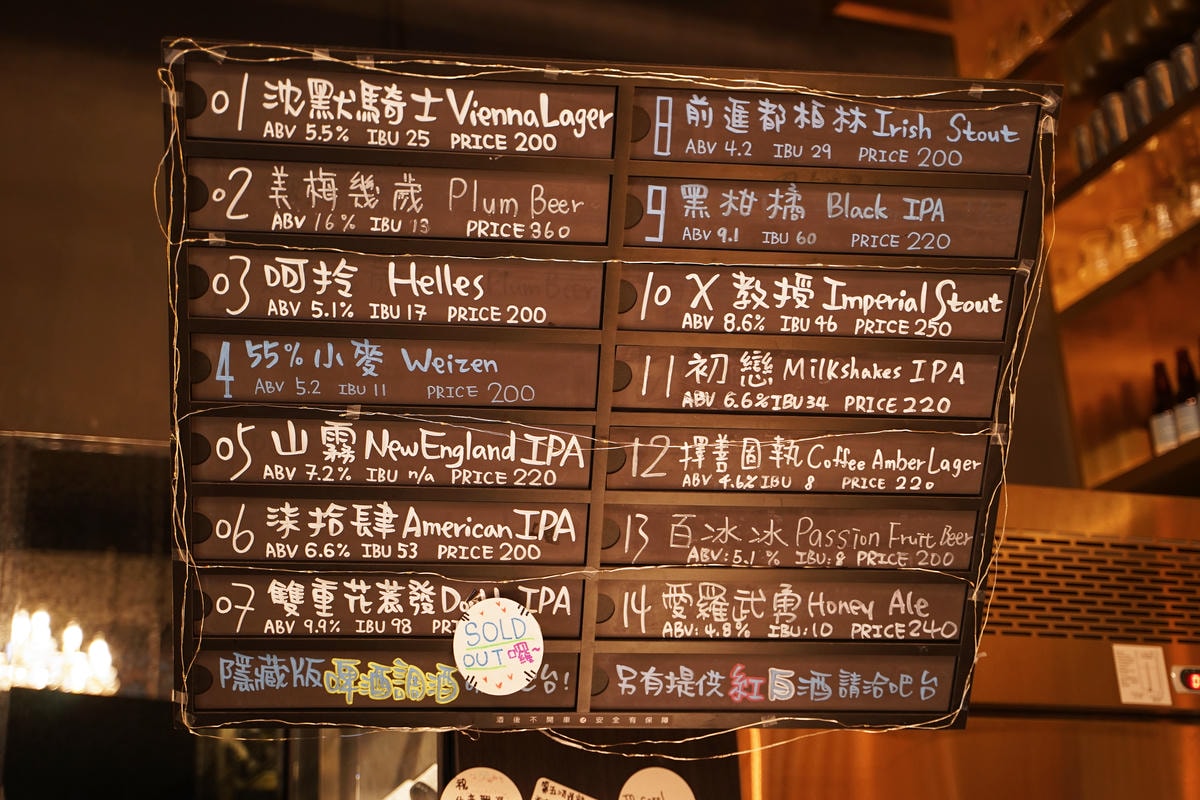 01 沈默騎士 Vienna Lager
ABV 5.5% IBU 25 PRICE 200
02 美梅幾歲 Plum Beer
ABV 16% IBU 13 PRICE 360
03 呵拎 Helles
ABV 5.1% IBU 17 PRICE 200
4 55%小麥 Weizen
ABV 5.2 IBU 11 PRICE 200
05 山霧 New England IPA
ABV 7.2% IBU n/a PRICE 220
06 柒拾肆 American IPA
ABV 6.6% IBU 53 PRICE 200
07 雙重花惹發 IPA
ABV 9.9% IBU 98
SOLD
OUT囉~
隱藏版啤酒 台!
8 前進都柏林 Irish Stout
ABV 4.2 IBU 29 PRICE 200
9 黑柑橘 Black IPA
ABV 9.1 IBU 60 PRICE 220
10 X教授 Imperial Stout
ABV 8.6% IBU 46 PRICE 250
11 初戀 Milkshakes IPA
ABV 6.6% IBU 34 PRICE 220
12 擇善固執 Coffee Amber Lager
ABV 4.6% IBU 8 PRICE 220
13 百冰冰 Passion Fruit Beer
ABV: 5.1 % IBU: 8 PRICE 200
14 愛羅武勇 Honey Ale
ABV: 4.8% IBU: 10 PRICE 240
另有提供紅白酒請洽吧台
酒後不開車 安全有保障
祝